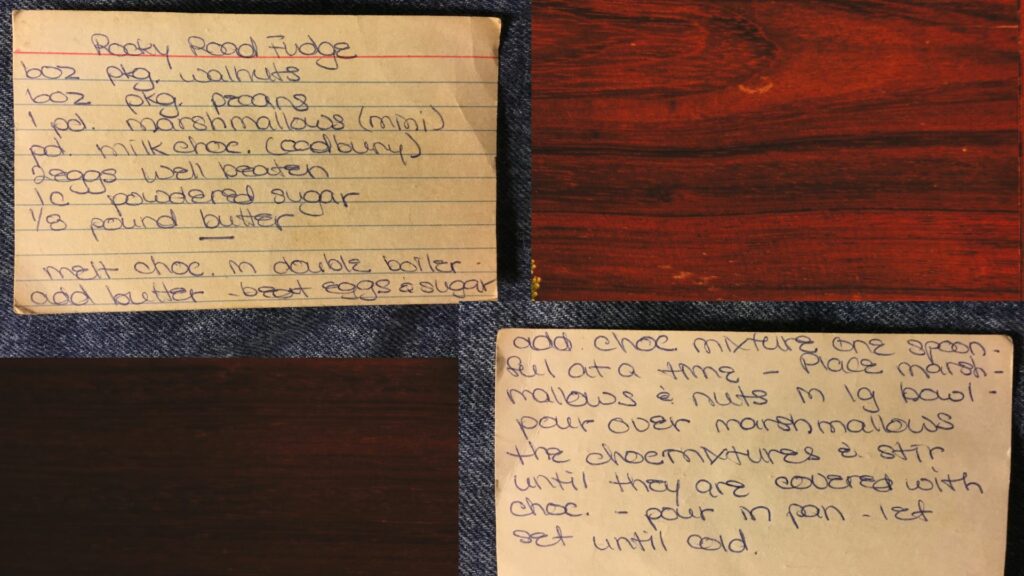 Rocky Road Fudge
6oz pkg. walnuts
6oz pkg. pecans
1 pd. marshmallows (mini)
pd. milk choc. (cadbury)
2eggs well beaten
1c powdered sugar
1/8 pound butter
melt choc. in double boiler.
add butter - beat eggs & sugar
add choc mixture one spoon-
ful at a time - Place marsh-
mallows & nuts in lg bowl -
pour over marshmallows
the chocmixtures & stir
until they are covered with
choc. - pour in pan - let
set until cold.